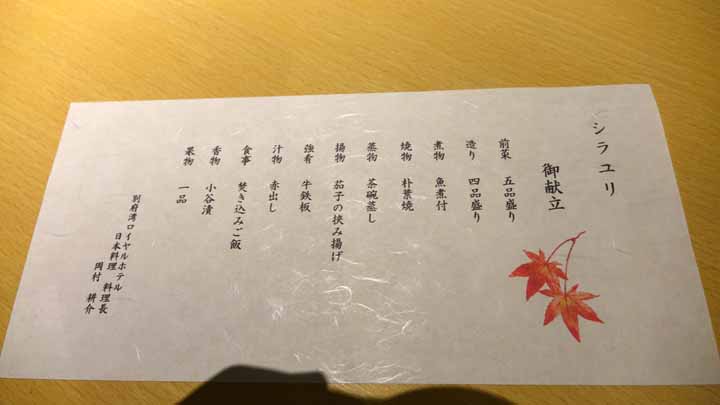 シラユリ
御献立
前菜 五品盛り
造り 四品盛り
煮物 魚煮付
焼物 朴葉焼
蒸物 茶碗蒸し
揚物 茄子の挟み揚げ
強肴 牛鉄板
汁物 赤出し
食事 焚き込みご飯
香物 小谷漬
果物 一品
別府湾ロイヤルホテル
日本料理 料理長
岡村 耕介